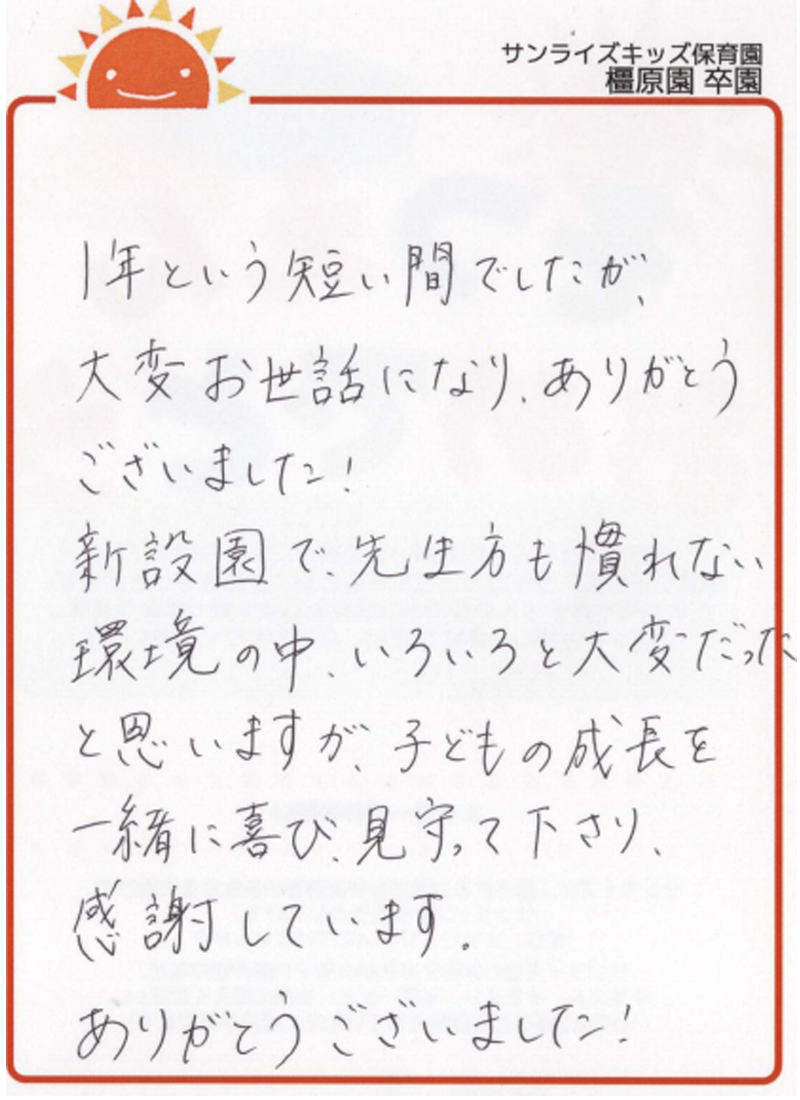 サンライズキッズ保育園
橿原園 卒園
1年という短い間でしたが、
大変お世話になり、ありがとう
ございました!
新設園で、先生方も慣れない
環境の中、いろいろと大変だった
と思いますが、子どもの成長を
一緒に喜び、見守って下さり、
感謝しています。
ありがとうございました!